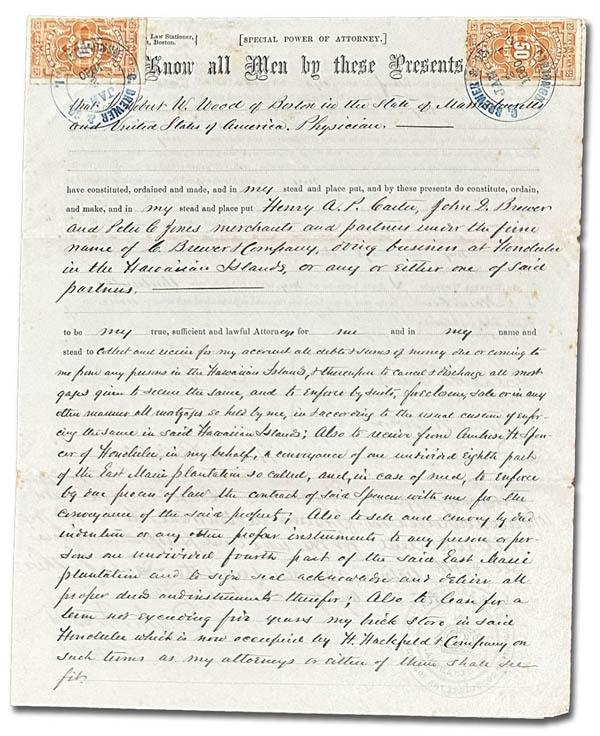 Law Stationer,
Boston.
[SPECIAL POWER OF ATTORNEY.]
Know all Men by these Presents
50
C. BREWER & CO
JAN
C. BREWER &
JAN
That I Robert W. Wood of Boston in the State of Massachusetts
and United States of America. Physician.
have constituted, ordained and made, and in my stead and place put, and by these presents do constitute, ordain,
and make, and in my stead and place put Henry A. P. Carter, John D. Brewer
and Peter C Jones merchants and partners under the firm
name of C. Brewer & Company, doing business at Honolulu
in the Hawaiian Islands, or any or either one of said
partners.
to be my true, sufficient and lawful Attorneys for me and in my name and
stead to collect and receive for my account all debts & sums of money due or coming to
me from any persons in the Hawaiian Islands, & thereupon to cancel & discharge all mort
gages given to secure the same, and to enforce by suits, foreclosure, sale or in any
other manner all mortgages so held by me, and according to the usual custom of enfor-
cing the same in said Hawaiian Islands; Also to receive from Ambrose H. Spen-
cer of Honolulu, in my behalf, a conveyance of one undivided eighth part
of the East Maui plantation so called, and, in case of need, to enforce
by due process of law the contract of said Spencer with me for the
conveyance of the said property; Also to sell and convey by deed
indenture or any other proper instruments to any person or per-
sons one undivided fourth part of the said East Maui
plantation and to sign seal acknowledge and deliver all
proper deeds and instruments therefor; Also to lease for a
term not exceeding five years my brick store in said
Honolulu which is now occupied by H. Hackfeld & Company on
such terms as my attorneys or either of them shall see
fit.